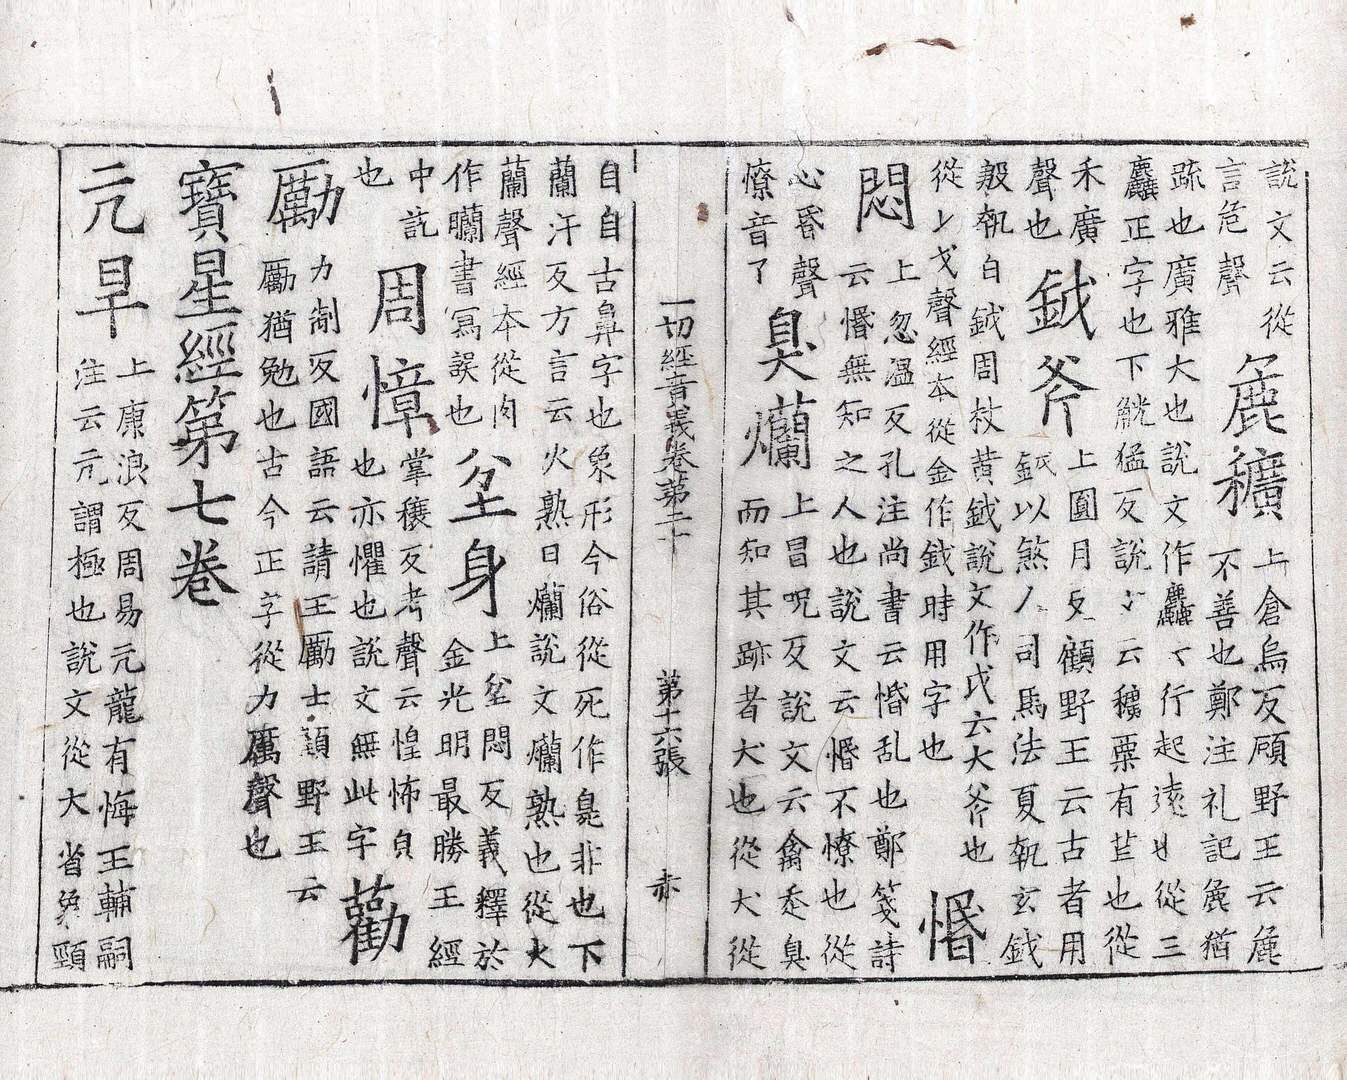 說文云從
言危聲
麁穬
上倉烏反顧野王云麁
不善也鄭注礼記麁猶
疏也廣雅大也說文作麤〻行起遠也從三
麤正字也下觥猛反說〻云穬粟有芒也從
禾廣
聲也
鉞斧
上圓月反顧野王云古者用
鉞以煞人司馬法夏執玄鉞
殷執白鉞周杖黄鉞說文作戉云大斧也
從乚戈聲經本從金作鉞時用字也
惛
悶
上忽温反孔注尚書云惛乱也鄭箋詩
云惛無知之人也說文云惛不憭也從
心昏聲
憭音了
臭爛
上冒呪反說文云禽走臭
而知其跡者犬也從犬從
一切經音義卷第二十
第十六張
赤
自自古鼻字也象形今俗從死作臰非也下
蘭汗反方言云火熟曰爛說文爛熟也從火
蘭聲經本從肉
作書寫誤也
坌身
上坌悶反義釋於
金光明最勝王經
中訖
也
周慞
掌穰反考聲云惶怖皃
也亦懼也說文無此字
勸
勵
力制反國語云請王勵士顧野王云
勵猶勉也古今正字從力厲聲也
寶星經第七卷
亢旱
上康浪反周易亢龍有悔王輔嗣
注云亢謂極也說文從大省象頸